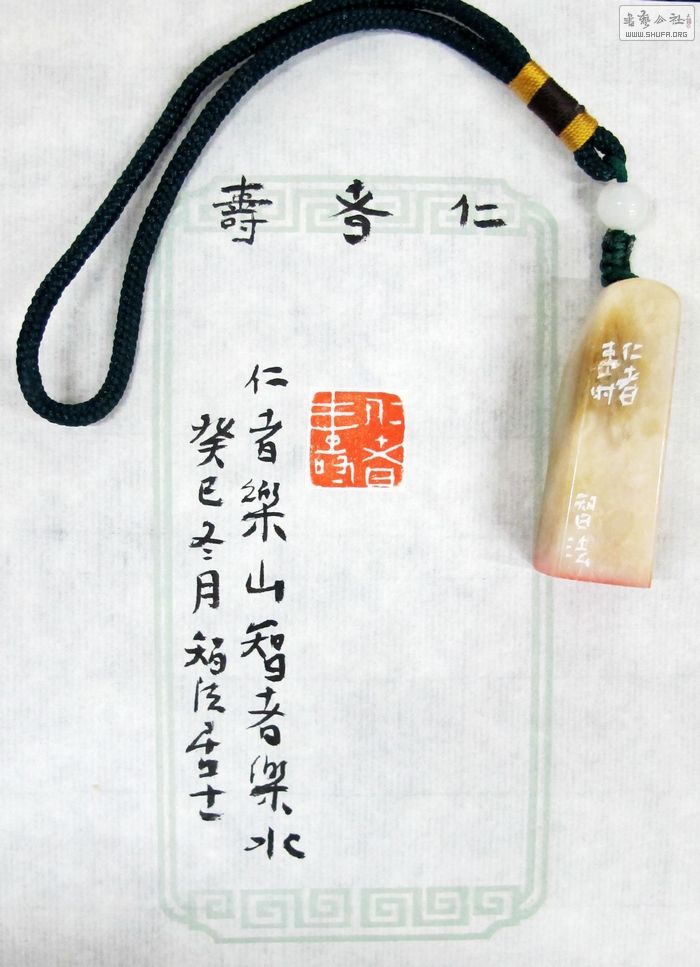 仁者壽
仁者樂山智者樂水
癸巳冬月智法居士
仁者
壽
仁者
壽
智法
書藝公社
WWW.SHUFA.ORG